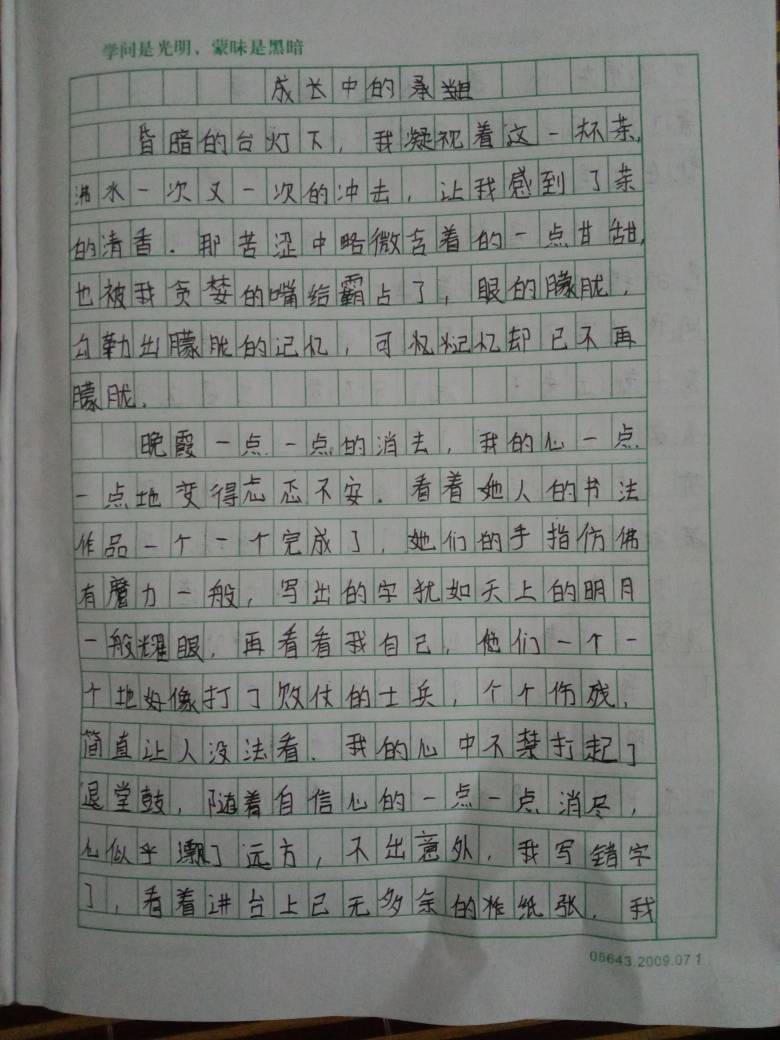 学问是光明，蒙昧是黑暗
成长中的承担
昏暗的台灯下，我凝视着这一杯茶，
沸水一次又一次的冲去，让我感到了茶
的清香．那苦涩中略微含着的一点甘甜，
也被我贪婪的嘴给霸占了，眼的朦胧，
勾勒出朦胧的记忆，可记忆却已不再
朦胧．
晚霞一点一点的消去，我的心一点
一点地变得忐忑不安．看着她人的书法
作品一个一个完成了，她们的手指仿佛
有魔力一般，写出的字犹如天上的明月
一般耀眼，再看看我自己，他们一个一
个地好像打了败仗的士兵，个个伤残，
简直让人没法看．我的心中不禁打起了
退堂鼓，随着自信心的一点一点消尽，
心似乎飘了远方，不出意外，我写错字
了，看着讲台上已无多余的纸张，我
08643.2009.07 1